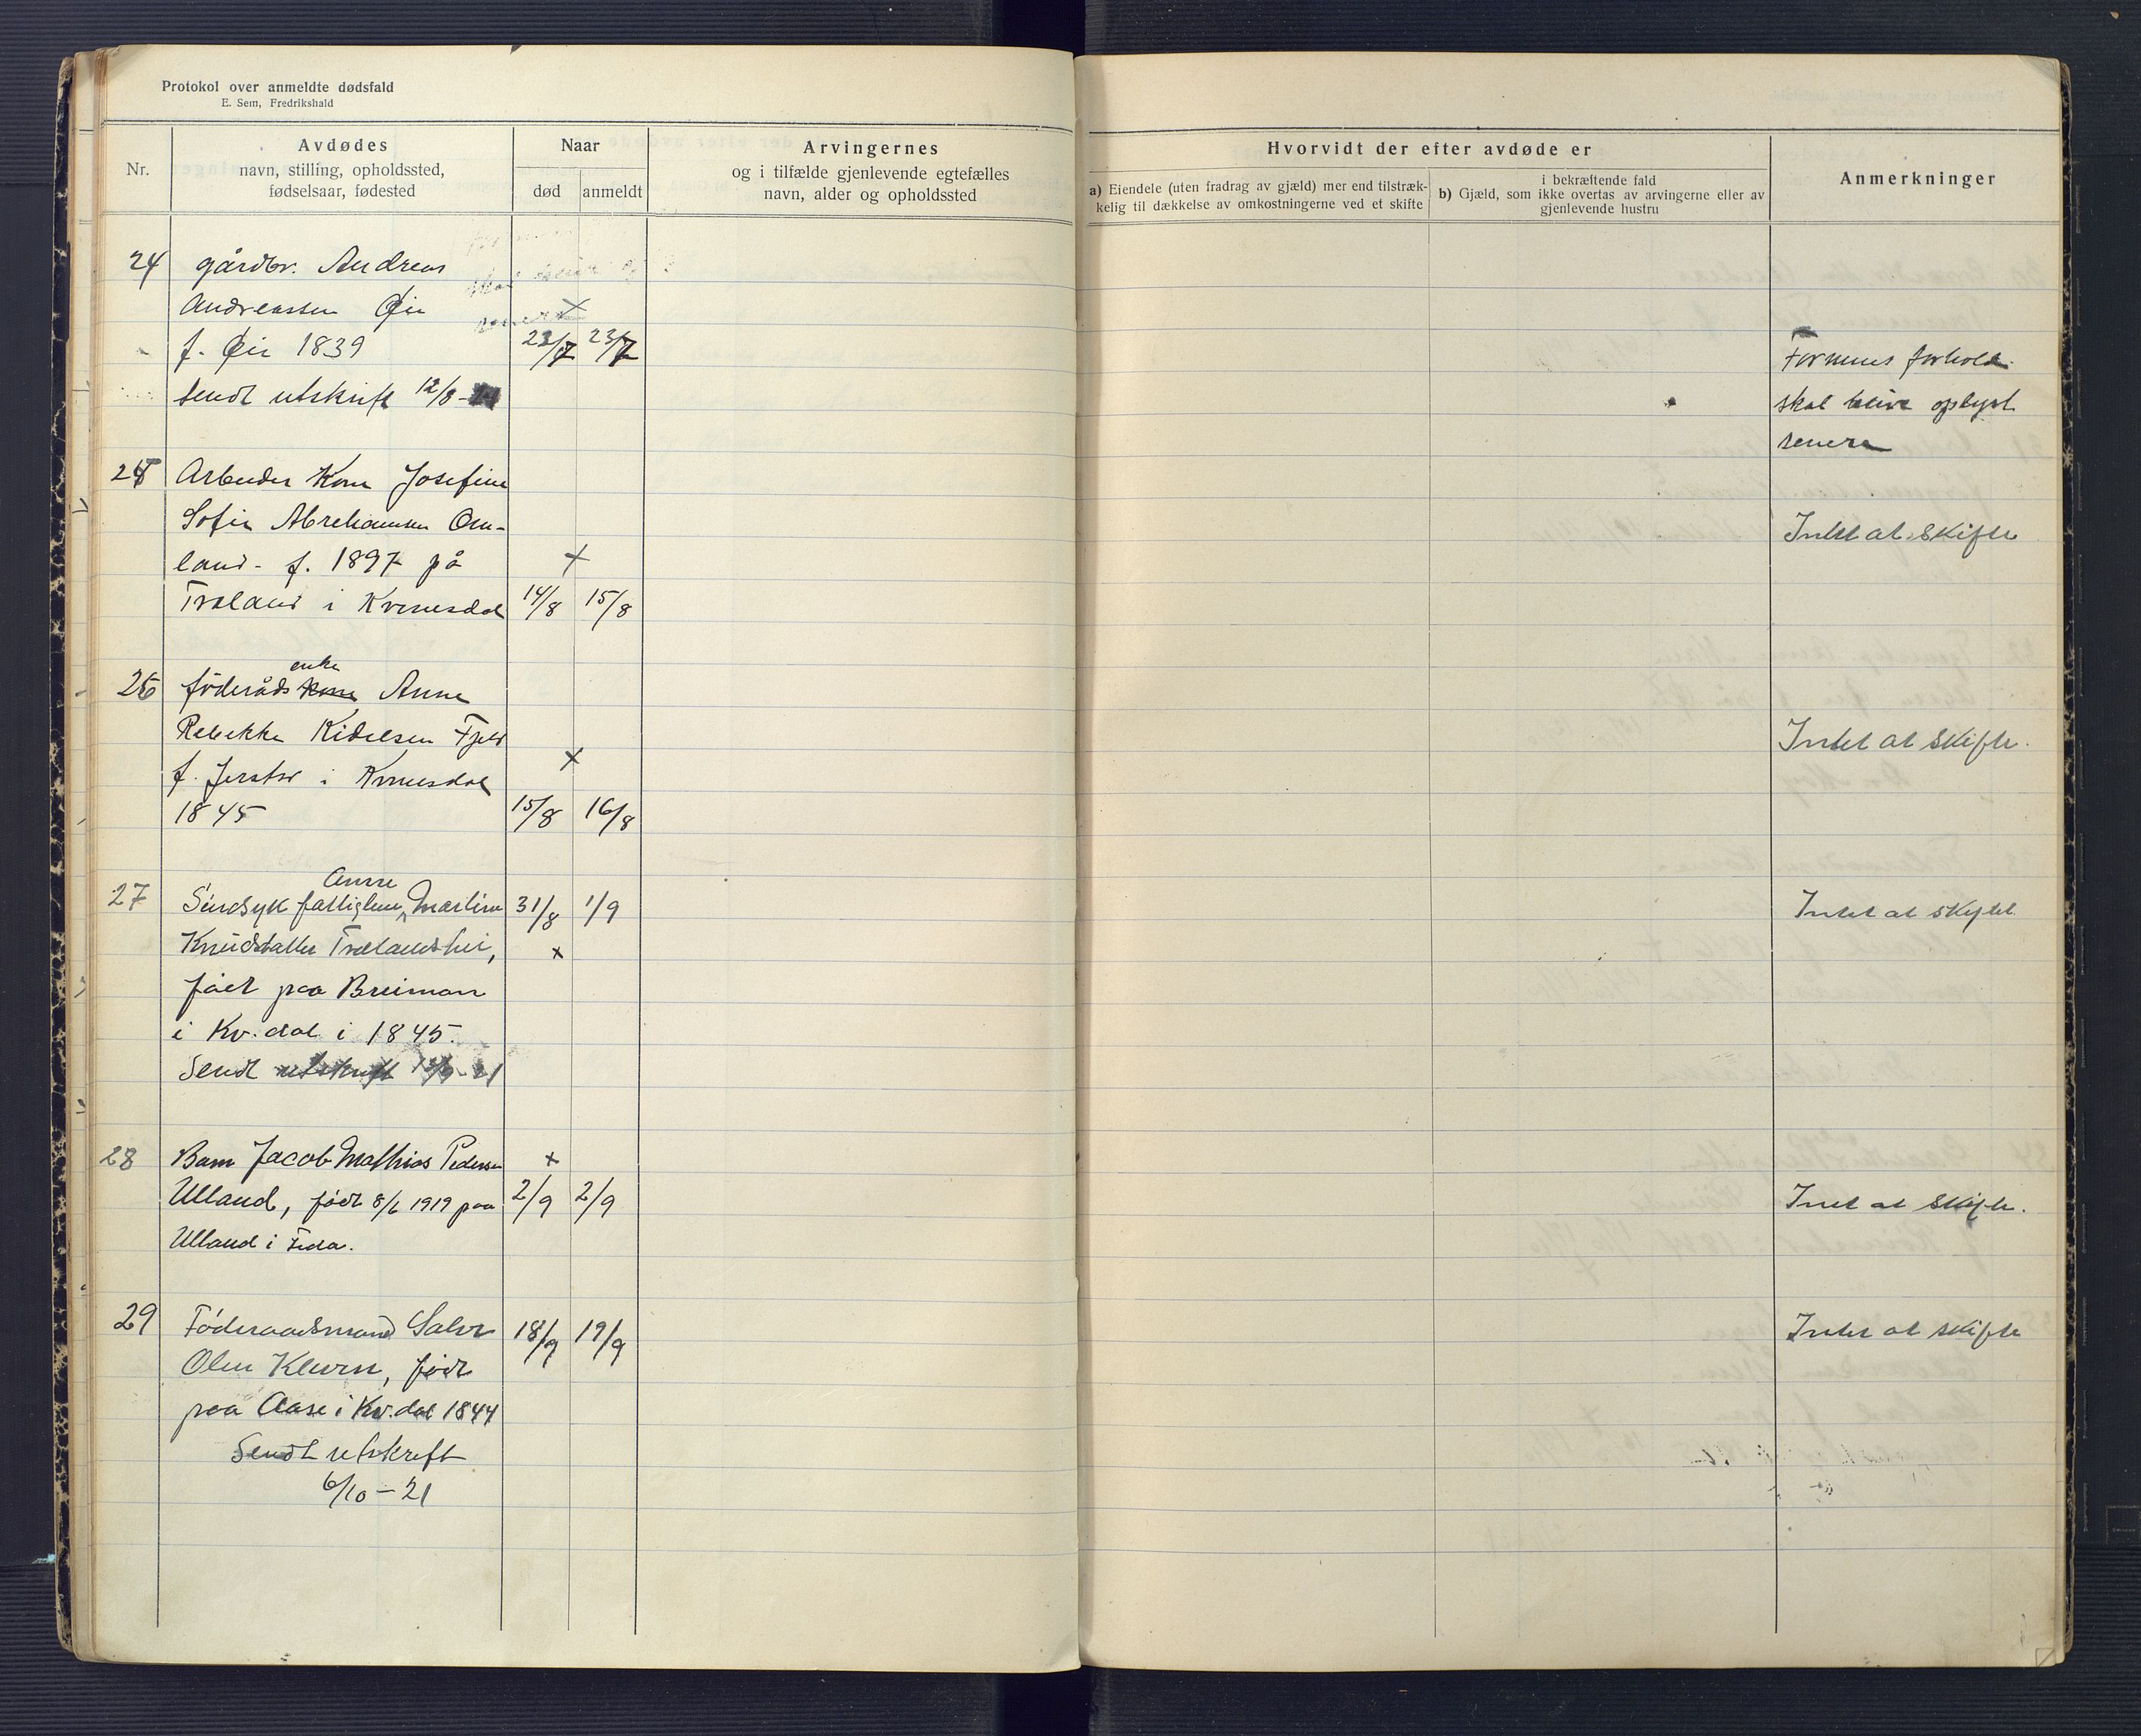 Protokol over anmeldte dødsfald
E. Sem, Fredrikshald
Nr.
Avdødes
navn, stilling, opholdssted,
fødselsaar, fødested
Naar
død
anmeldt
Arvingernes
og i tilfælde gjenlevende egtefælles
navn, alder og opholdssted
Hvorvidt der efter avdøde er
a) Eiendele (uten fradrag av gjæld) mer end tilstræk-
kelig til dækkelse av omkostningerne ved et skifte
i bekræftende fald
b) Gjæld, som ikke overtas av arvingerne eller av
gjenlevende hustru
Anmerkninger
24 gårdbr. Andreas
Andreassen Øie
f. Øie 1839 22/7 23/7
Sendt utskrift 12/8-
Formues forhold
skal blive oplyst
senere
25 Arbeider Kone Josefine
Sofie Abrehamsen Om-
land - f. 1897 på
Træland i Kvinesdal 14/8 15/8
Intet at skifte
enke
26 føderåds kone Anne
Rebekke Kidelsen Fjeld
f. Jerstad i Kvinesdal
1845 15/8 16/8
Intet at skifte.
Anne
27 Sindsyk fattiglem Martine 31/8 1/9
Knudsdatter Trælandshei,
født paa Breimoen
i Kv.dal i 1845.
Sendt utskrift 12/9-21
Intet at skifte
28 Barn Jacob Mathias Pedersen
Ulland, født 8/6 1919 paa 2/9 2/9
Ulland i Feda.
Intet at skifte.
29 Føderaadsmand Salve 18/9 19/9
Olsen Kleven, født
paa Aase i Kv.dal 1844
Sendt utskrift
6/10-21
Intet at skifte